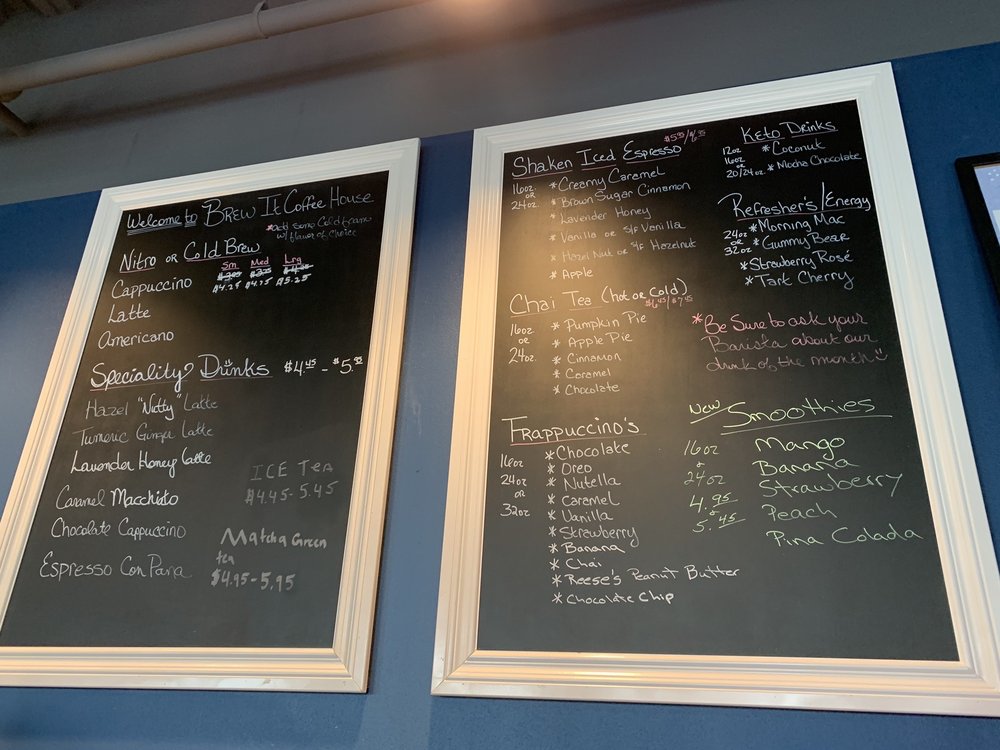 Welcome to BREW It Coffee House
*add some Cold foam
w/ flavor of choice
Nitro or Cold Brew
Sm Med Lrg
Cappuccino
$4.25 $4.75 $5.25
Latte
Americano
Speciality? Drinks $4.45 - $5.95
Hazel "Nutty" Latte
Tumeric Ginger Latte
Lavender Honey Latte
Caramel Macchiato
Chocolate Cappuccino
Espresso Con Pana
ICE Tea
$4.45-5.45
Matcha Green
tea
$4.95-5.95
Shaken Iced Espresso
16oz.
or
24oz.
* Creamy Caramel
* Brown Sugar Cinnamon
* Lavender Honey
* Vanilla or S/F Vanilla
* Hazel Nut or S/F Hazelnut
* Apple
Chai Tea (hot or Cold)
16oz
or
24oz.
* Pumpkin Pie
* Apple Pie
* Cinnamon
* Caramel
* Chocolate
Frappuccino's
16oz
24oz
or
32oz
* Chocolate
* Oreo
* Nutella
* Caramel
* Vanilla
* Strawberry
* Banana
* Chai
* Reese's Peanut Butter
* Chocolate Chip
Keto Drinks
12oz
16oz
or
20/24oz.
* Coconut
* Mocha Chocolate
Refresher's/Energy
24oz
or
32oz
* Morning Mac
* Gummy Bear
* Strawberry Rosé
* Tart Cherry
*Be Sure to ask your
Barista about our
drink of the month
New Smoothies
16oz
or
24oz
4.95
or
5.45
Mango
Banana
Strawberry
Peach
Pina Colada